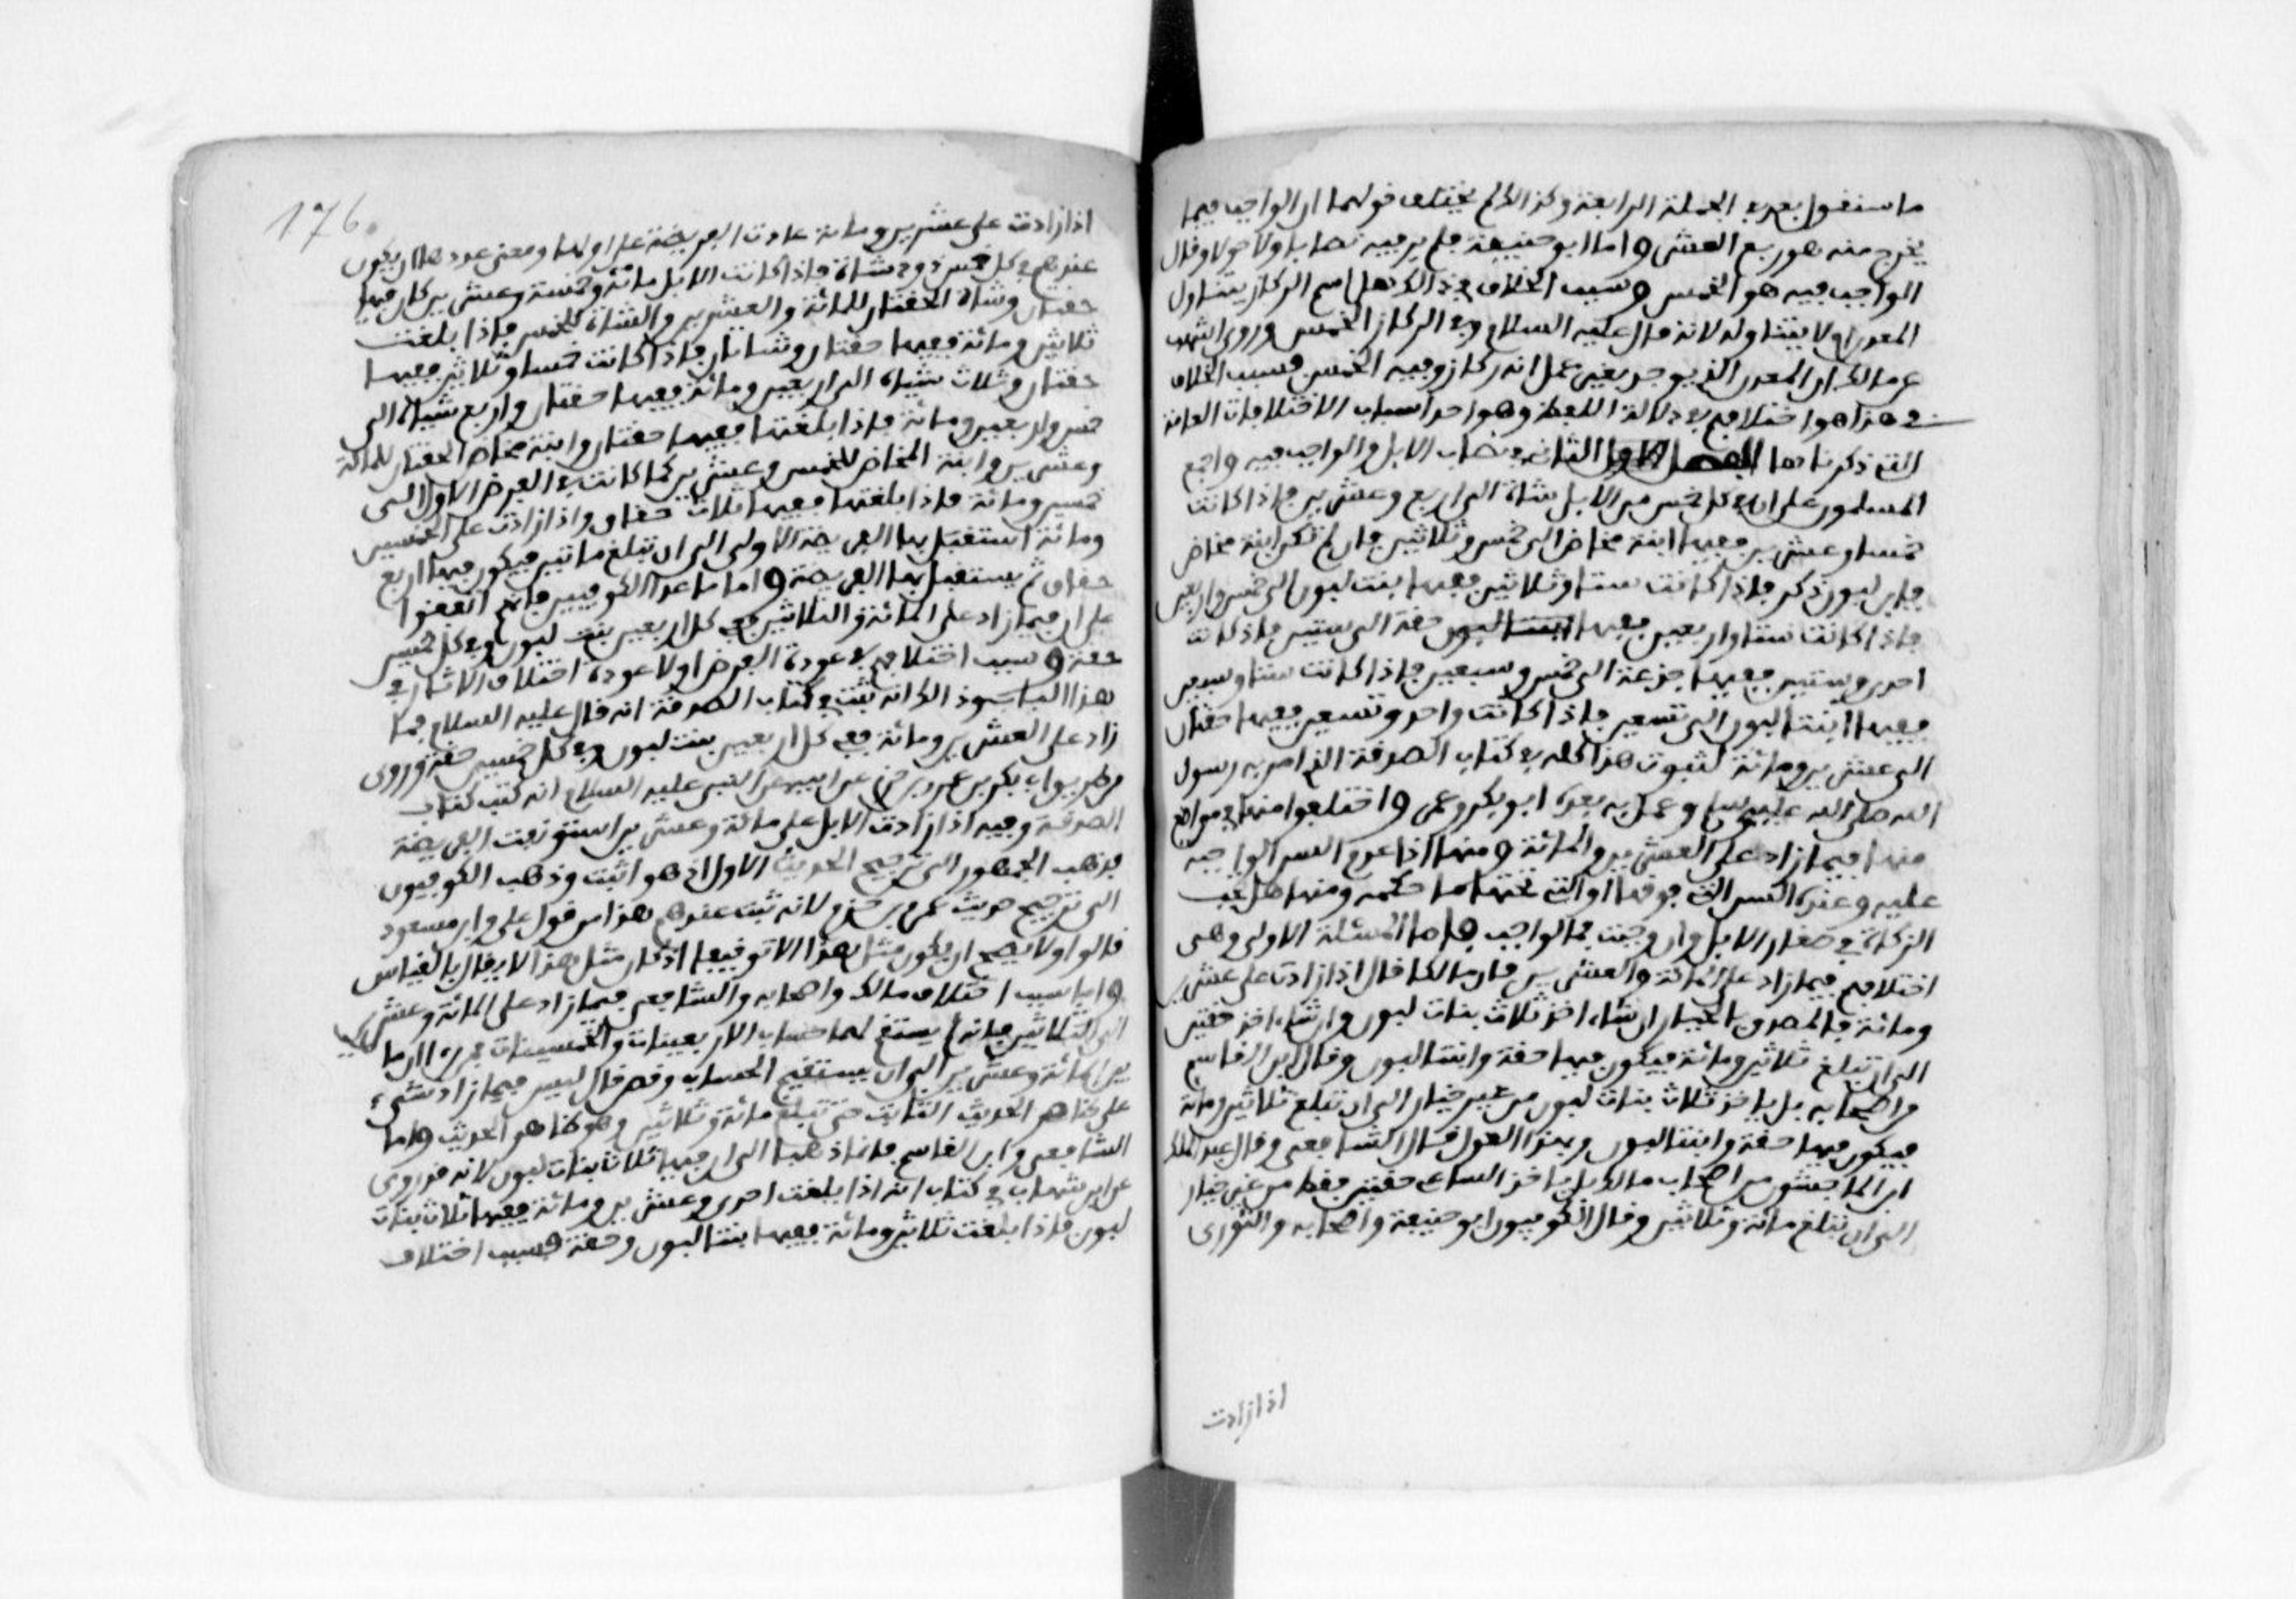 ما سنقوله بعد في الجملة الرابعة وكذلك لم يختلف قولهما ان الواجب فيما
يخرج منه هو ربع العشر واما ابو حنيفة فلم ير فيه نصابا ولا حولا وقال
الواجب فيه هو الخمس وسبب الخلاف في ذلك هل اسم الركاز يتناول
المعدن او لا يتناوله لانه قال عليه السلام وفي الركاز الخمس وروى اشهب
عن مالك ان المعدن الذي يوجد بغير عمل انه ركاز وفيه الخمس فسبب الخلاف
في هذا هو اختلافهم في دلالة اللفظ وهو احد اسباب الاختلافات العامة
التي ذكرناها الفصل الثاني في نصاب الابل والواجب فيه واجمع
المسلمون على ان في كل خمس من الابل شاة الى اربع وعشرين فاذا كانت
خمسا وعشرين ففيها ابنة مخاض الى خمس وثلاثين فان لم تكن ابنة مخاض
فابن لبون ذكر فاذا كانت ستا وثلاثين ففيها بنت لبون الى خمس واربعين
فاذا كانت ستا واربعين ففيها حقة الى ستين فاذا كانت
احدى وستين ففيها جذعة الى خمس وسبعين فاذا كانت ستا وسبعين
ففيها ابنتا لبون الى تسعين فاذا كانت واحد وتسعين ففيها حقتان
الى عشرين ومائة لثبوت هذا كله في كتاب الصدقة الذي امر به رسول
الله صلى الله عليه وسلم وعمل به بعده ابو بكر وعمر واختلفوا منها في مواضع
منها فيما زاد على العشرين والمائة ومنها اذا عدم السن الواجبة
عليه وعنده السن التي فوقها او التي تحتها ما حكمه ومنها هل تجب
الزكاة في صغار الابل وان وجبت فما الواجب فاما المسئلة الاولى وهي
اختلافهم فيما زاد على المائة والعشرين فان مالكا قال اذا زادت على عشرين
ومائة فالمصدق بالخيار ان شاء اخذ ثلاث بنات لبون وان شاء اخذ حقتين
الى ان تبلغ ثلاثين ومائة فيكون فيها حقة وابنتا لبون وقال ابن القاسم
من اصحابه بل ياخذ ثلاث بنات لبون من غير خيار الى ان تبلغ ثلاثين ومائة
فيكون فيها حقة وابنتا لبون وبهذا القول قال الشافعي وقال عبد الملك
ابن الماجشون من اصحاب مالك بل ياخذ الساعي حقتين فقط من غير خيار
الى ان تبلغ مائة وثلاثين وقال الكوفيون ابو حنيفة واصحابه والثوري
اذا زادت
176
اذا زادت على عشرين ومائة عادت الفريضة على اولها ومعنى عودها ان يكون
عندهم في كل خمس ذود شاة فاذا كانت الابل مائة وخمسة وعشرين كان فيها
حقتان وشاة الحقتان للمائة والعشرين والشاة للخمس فاذا بلغت
ثلاثين ومائة ففيها حقتان وشاتان فاذا كانت خمسا وثلاثين ففيها
حقتان وثلاث شياه الى اربعين ومائة ففيها حقتان واربع شياه الى
خمس واربعين ومائة فاذا بلغتها ففيها حقتان وابنة مخاض الحقتان للمائة
وعشرين وابنة المخاض للخمس وعشرين كما كانت في الفرض الاول الى
خمسين ومائة فاذا بلغتها ففيها ثلاث حقاق واذا زادت على الخمسين
ومائة استقبل بها الفريضة الاولى الى ان تبلغ مائتين فيكون فيها اربع
حقاق ثم يستقبل بها الفريضة واما ما عدا الكوفيين فانهم اتفقوا
على ان فيما زاد على المائة والثلاثين في كل اربعين بنت لبون وفي كل خمسين
حقة وسبب اختلافهم في عودة الفرض او لا عودة اختلاف الاثار في
هذا الباب وذلك انه ثبت في كتاب الصدقة انه قال عليه السلام فما
زاد على العشرين ومائة ففي كل اربعين بنت لبون وفي كل خمسين حقة وروي
من طريق ابي بكر بن عمرو بن حزم عن ابيه عن النبي عليه السلام انه كتب كتاب
الصدقة وفيه اذا زادت الابل على مائة وعشرين استونفت الفريضة
فذهب الجمهور الى ترجيح الحديث الاول اذ هو اثبت وذهب الكوفيون
الى ترجيح حديث عمرو بن حزم لانه ثبت عندهم هذا من قول علي وابن مسعود
قالوا ولا يصح ان يكون مثل هذا الا توقيفا اذ كان مثل هذا لا يقال بالقياس
واما سبب اختلاف مالك واصحابه والشافعي فيما زاد على المائة وعشرين
الى الثلاثين فلانه لم يستقم لهما حساب الاربعينات والخمسينات فمن راى ان ما
بين المائة وعشرين الى ان يستقيم الحساب وقص قال ليس فيما زاد شيء
على ظاهر الحديث الثابت حتى تبلغ مائة وثلاثين وهو ظاهر الحديث واما
الشافعي وابن القاسم فانما ذهبا الى ان فيها ثلاث بنات لبون لانه قد روى
عن ابن شهاب في كتاب انه اذا بلغت احدى وعشرين ومائة ففيها ثلاث بنات
لبون فاذا بلغت ثلاثين ومائة ففيها بنتا لبون وحقة فسبب اختلاف